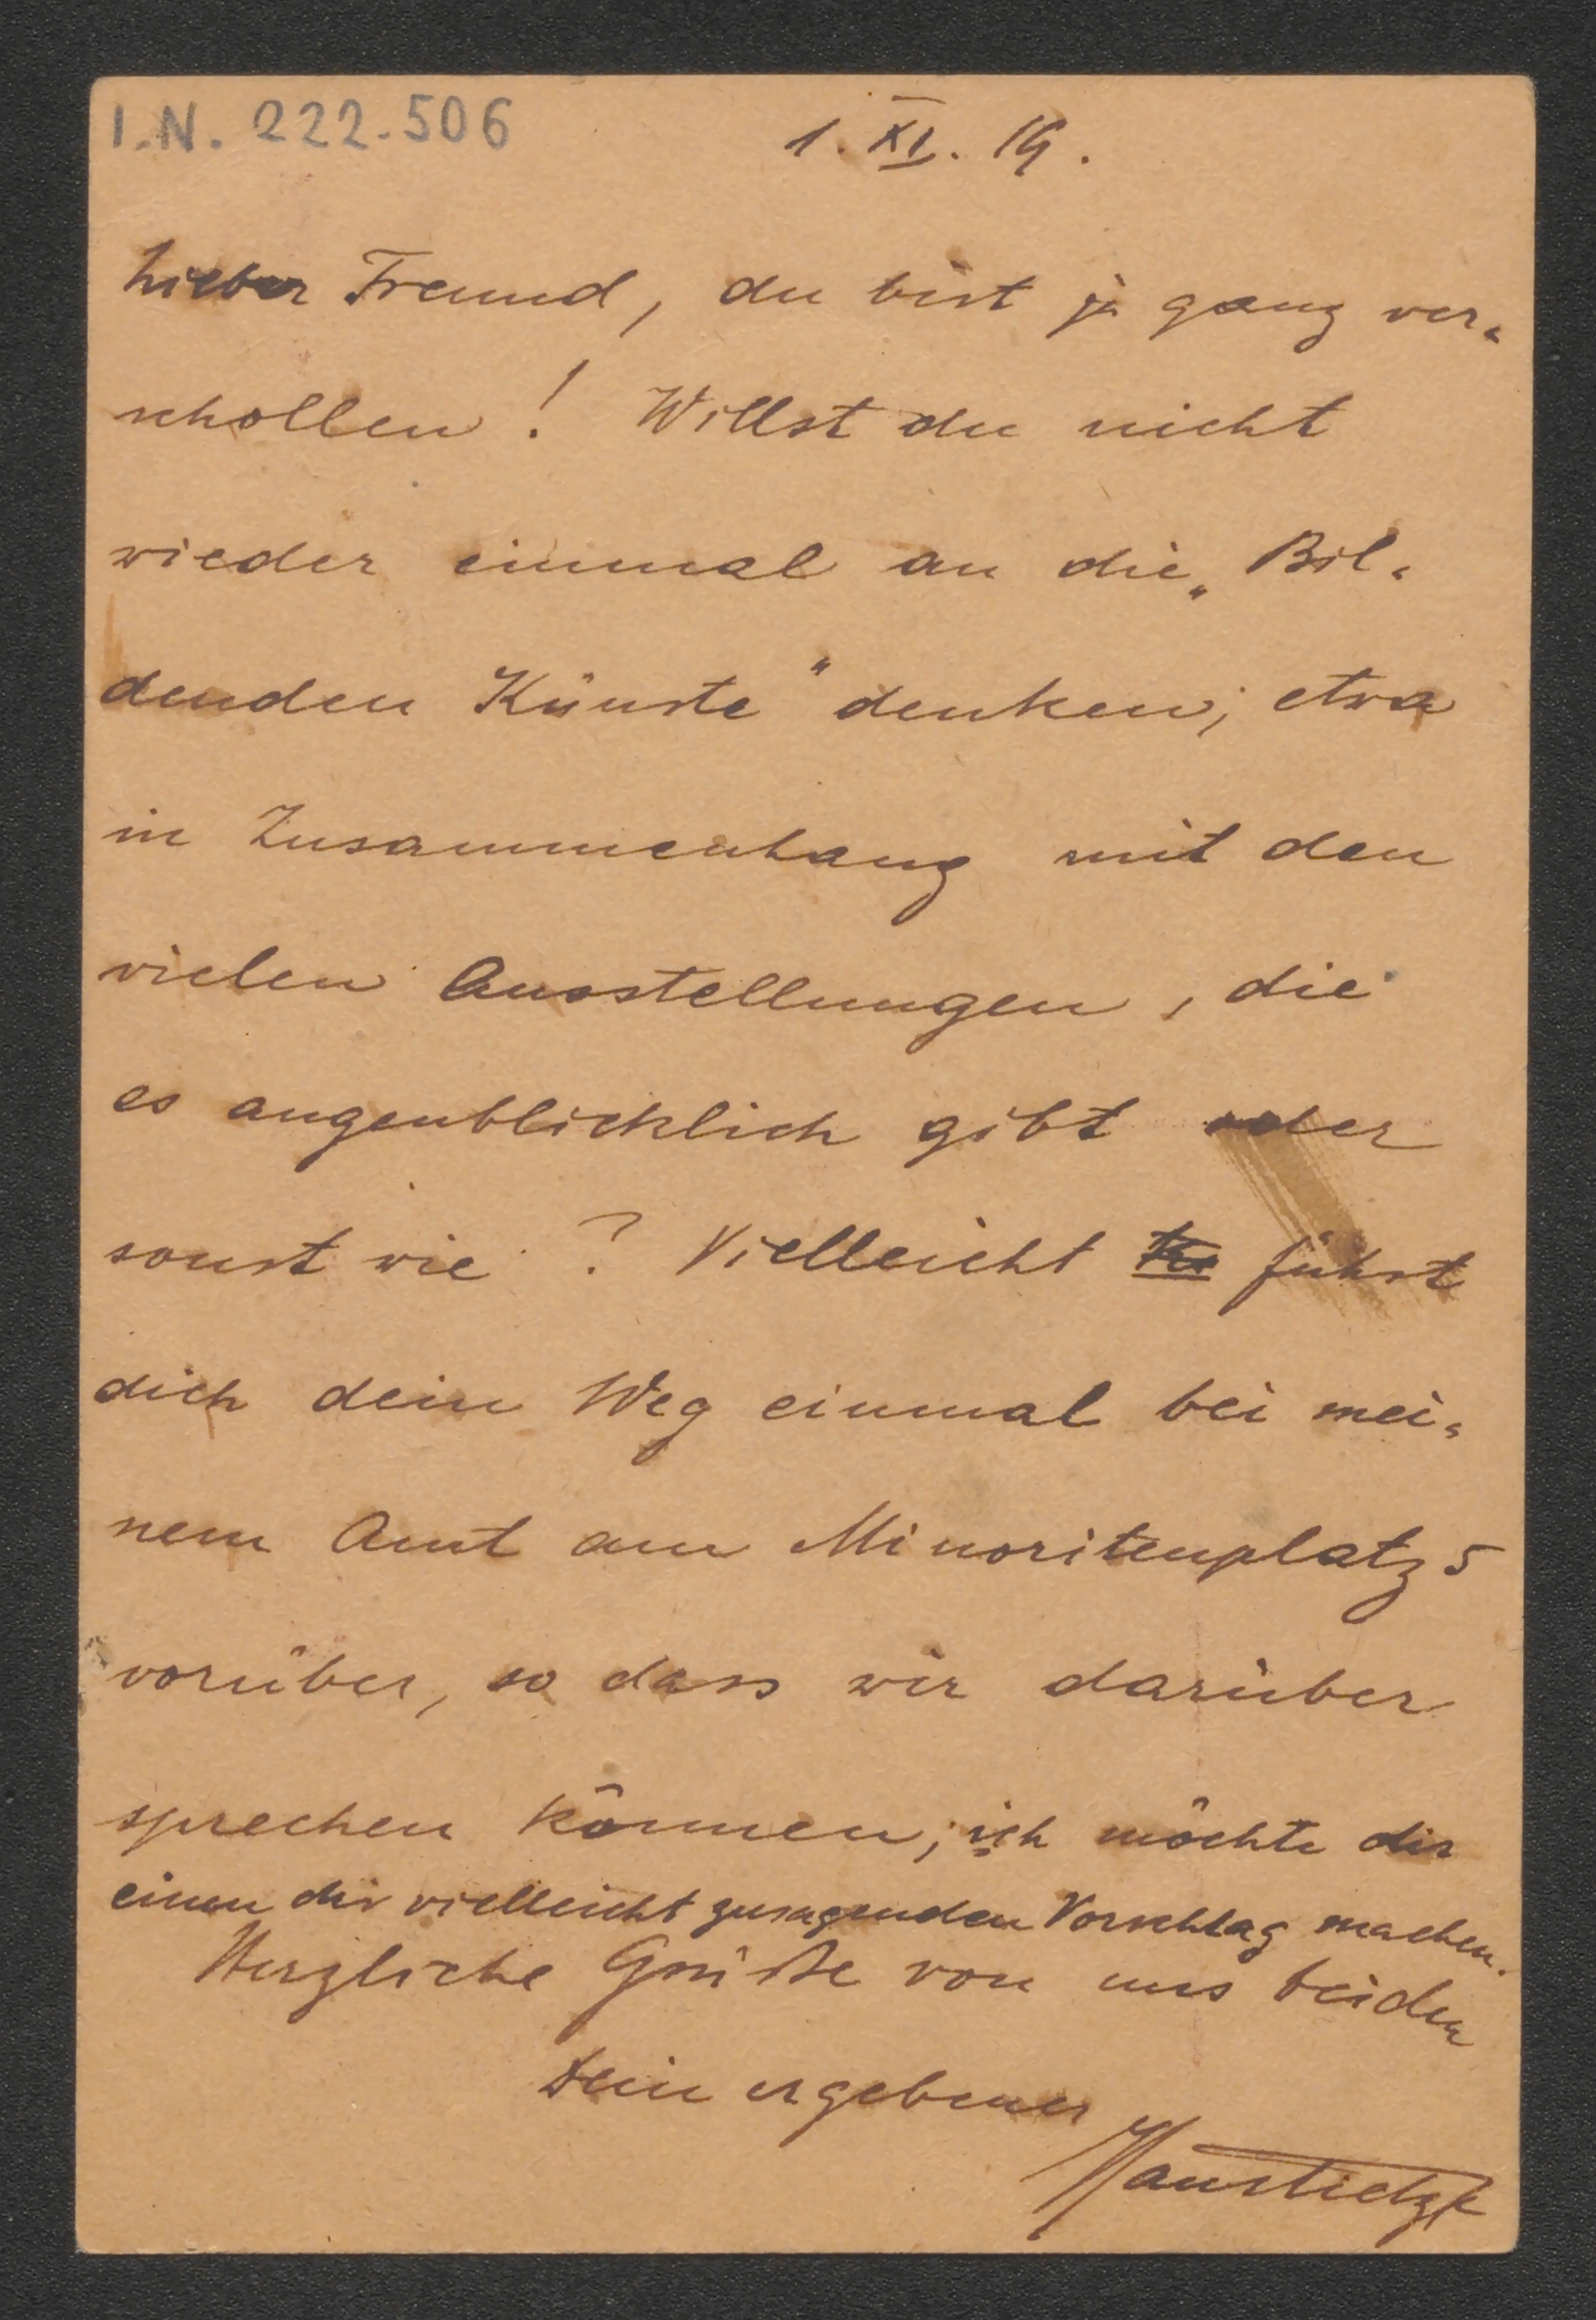 I.N. 222.506
1. XI. 19.
Lieber Freund, du bist ja ganz ver-
schollen! Willst du nicht
wieder einmal an die „Bil-
denden Künste" denken; etwa
in Zusammenhang mit den
vielen Ausstellungen, die
es augenblicklich gibt oder
sonst wie? Vielleicht führst
dich dein Weg einmal bei mei-
nem Amt am Minoritenplatz 5
vorüber, so dass wir darüber
sprechen können; ich möchte dir
einen dir vielleicht zusagenden Vorschlag machen.
Herzliche Grüße von uns beiden
Dein ergebener
HansTietze